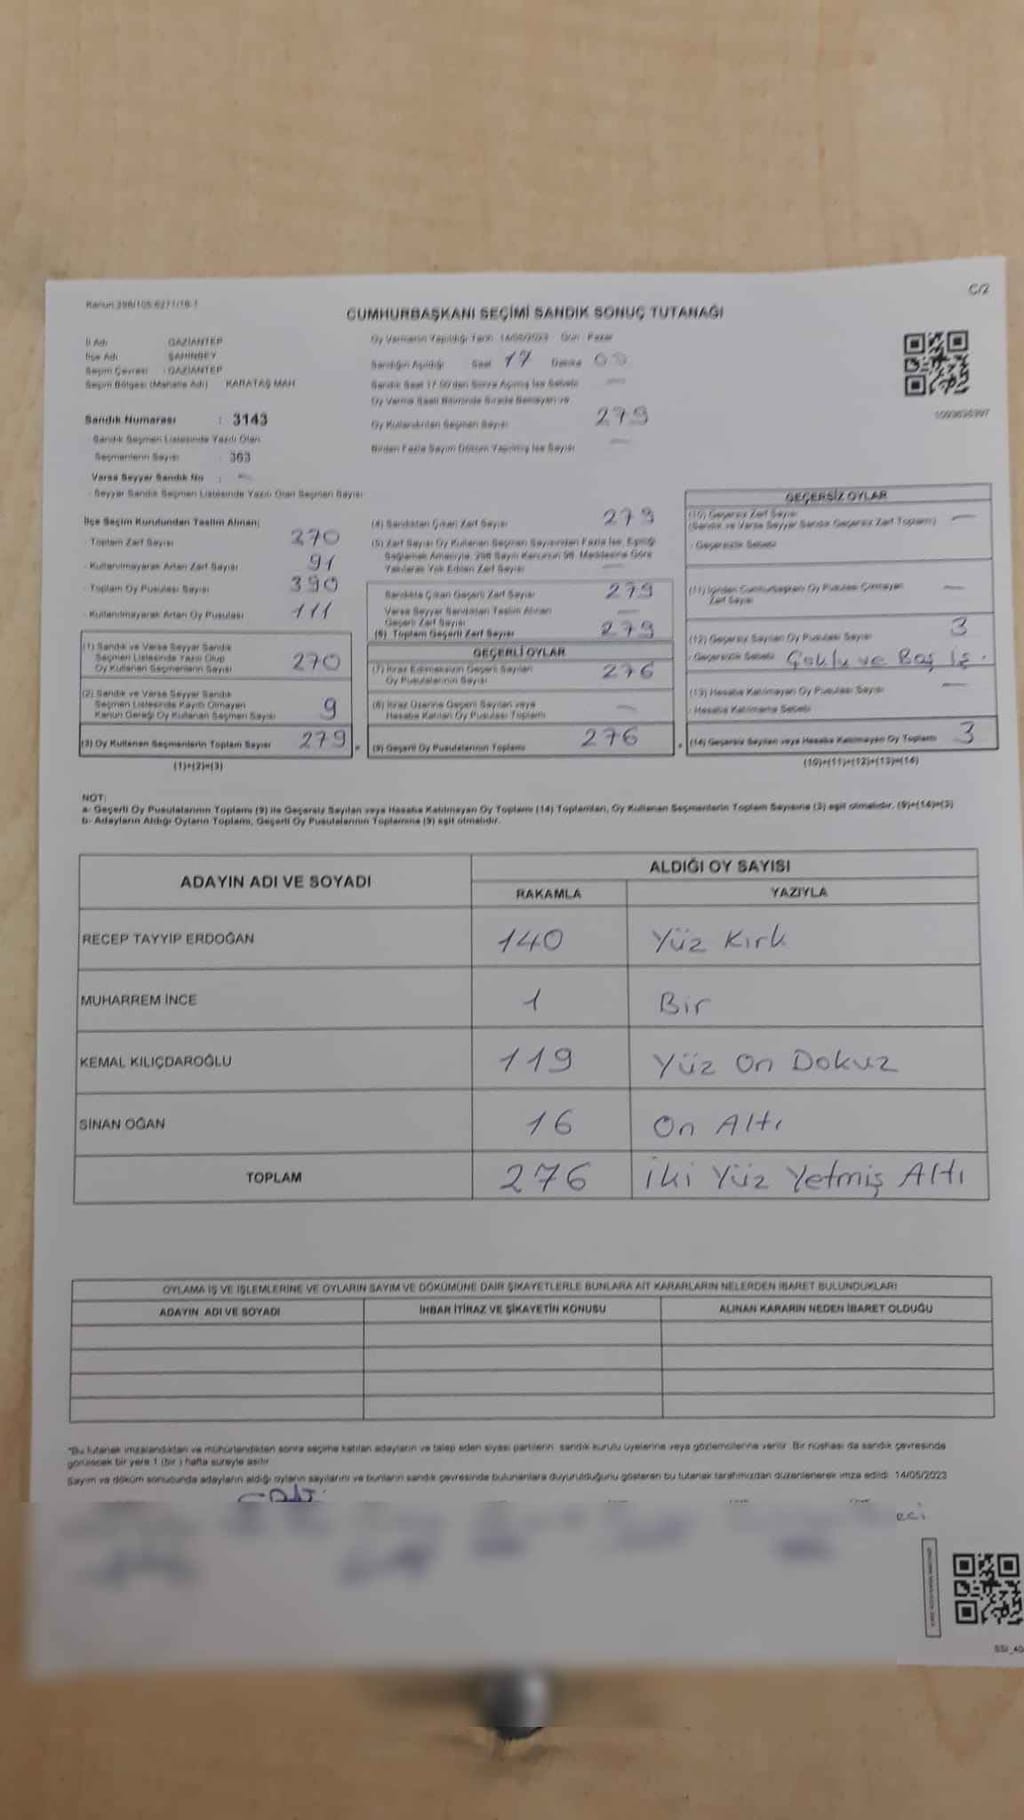 Kanun:298/105;6271/18-1
C/2
CUMHURBAŞKANI SEÇİMİ SANDIK SONUÇ TUTANAĞI
İl Adı GAZİANTEP
İlçe Adı ŞAHİNBEY
Seçim Çevresi : GAZİANTEP
Seçim Bölgesi (Mahalle Adı) KARATAŞ MAH
Sandık Numarası : 3143
Sandık Seçmen Listesinde Yazılı Olan
Seçmenlerin Sayısı : 363
Varsa Seyyar Sandık No : —
- Seyyar Sandık Seçmen Listesinde Yazılı Olan Seçmen Sayısı
Oy Vermenin Yapıldığı Tarih 14/05/2023 Gün Pazar
Sandığın Açıldığı Saat 17 Dakika
Sandık Saat 17.00'den Sonra Açılmış İse Sebebi —
Oy Verme Saati Bitiminde Sırada Bekleyen ve
Oy Kullandırılan Seçmen Sayısı 279
Birden Fazla Sayım Döküm Yapılmış İse Sayısı —
İlçe Seçim Kurulundan Teslim Alınan;
- Toplam Zarf Sayısı 370
- Kullanılmayarak Artan Zarf Sayısı 91
- Toplam Oy Pusulası Sayısı 390
- Kullanılmayarak Artan Oy Pusulası 111
(1) Sandık ve Varsa Seyyar Sandık
Seçmen Listesinde Yazılı Olup
Oy Kullanan Seçmenlerin Sayısı 270
(2) Sandık ve Varsa Seyyar Sandık
Seçmen Listesinde Kayıtlı Olmayan
Kanun Gereği Oy Kullanan Seçmen Sayısı 9
(3) Oy Kullanan Seçmenlerin Toplam Sayısı 279
(1)+(2)=(3)
(4) Sandıktan Çıkan Zarf Sayısı 279
(5) Zarf Sayısı Oy Kullanan Seçmen Sayısından Fazla İse, Eşitliği
Sağlamak Amacıyla, 298 Sayılı Kanunun 98. Maddesine Göre
Yakılarak Yok Edilen Zarf Sayısı —
Sandıkta Çıkan Geçerli Zarf Sayısı 279
Varsa Seyyar Sandıktan Teslim Alınan
Geçerli Zarf Sayısı —
(6) Toplam Geçerli Zarf Sayısı 279
GEÇERLİ OYLAR
(7) İtiraz Edilmeksizin Geçerli Sayılan
Oy Pusulalarının Sayısı 276
(8) İtiraz Üzerine Geçerli Sayılan veya
Hesaba Katılan Oy Pusulası Toplamı —
(9) Geçerli Oy Pusulalarının Toplamı 276
GEÇERSİZ OYLAR
(10) Geçersiz Zarf Sayısı
(Sandık ve Varsa Seyyar Sandık Geçersiz Zarf Toplamı) —
- Geçersizlik Sebebi
(11) İçinden Cumhurbaşkanı Oy Pusulası Çıkmayan
Zarf Sayısı —
(12) Geçersiz Sayılan Oy Pusulası Sayısı 3
- Geçersizlik Sebebi Çoklu ve Boş
(13) Hesaba Katılmayan Oy Pusulası Sayısı —
- Hesaba Katılmama Sebebi
(14) Geçersiz Sayılan veya Hesaba Katılmayan Oy Toplamı 3
(10)+(11)+(12)+(13)=(14)
NOT:
a- Geçerli Oy Pusulalarının Toplamı (9) ile Geçersiz Sayılan veya Hesaba Katılmayan Oy Toplamı (14) Toplamları, Oy Kullanan Seçmenlerin Toplam Sayısına (3) eşit olmalıdır. (9)+(14)=(3)
b- Adayların Aldığı Oyların Toplamı, Geçerli Oy Pusulalarının Toplamına (9) eşit olmalıdır.
ADAYIN ADI VE SOYADI
ALDIĞI OY SAYISI
RAKAMLA YAZIYLA
RECEP TAYYİP ERDOĞAN 140 Yüz Kırk
MUHARREM İNCE 1 Bir
KEMAL KILIÇDAROĞLU 119 Yüz On Dokuz
SİNAN OĞAN 16 On Altı
TOPLAM 276 İki Yüz Yetmiş Altı
OYLAMA İŞ VE İŞLEMLERİNE VE OYLARIN SAYIM VE DÖKÜMÜNE DAİR ŞİKAYETLERLE BUNLARA AİT KARARLARIN NELERDEN İBARET BULUNDUKLARI
ADAYIN ADI VE SOYADI İHBAR İTİRAZ VE ŞİKAYETİN KONUSU ALINAN KARARIN NEDEN İBARET OLDUĞU
*Bu tutanak imzalandıktan ve mühürlendikten sonra seçime katılan adayların ve talep eden siyasi partilerin sandık kurulu üyelerine veya gözlemcilerine verilir. Bir nüshası da sandık çevresinde
görülecek bir yere 1 (bir ) hafta süreyle asılır.
Sayım ve döküm sonucunda adayların aldığı oyların sayılarını ve bunların sandık çevresinde bulunanlara duyurulduğunu gösteren bu tutanak tarafımızdan düzenlenerek imza edildi. 14/05/2023